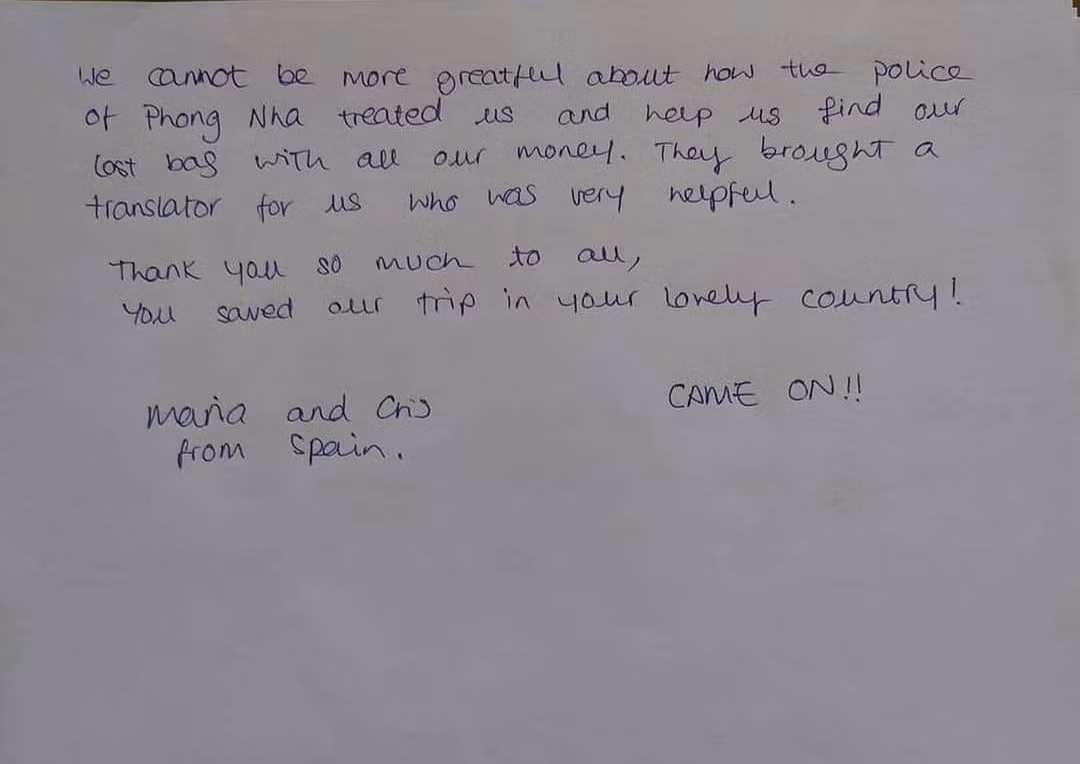 We cannot be more greatful about how the police
of Phong Nha treated us and help us find our
lost bag with all our money. They brought a
translator for us who was very helpful.
Thank you so much to all,
You saved our trip in your lovely country!
Maria and Cris
from Spain.
CAME ON!!